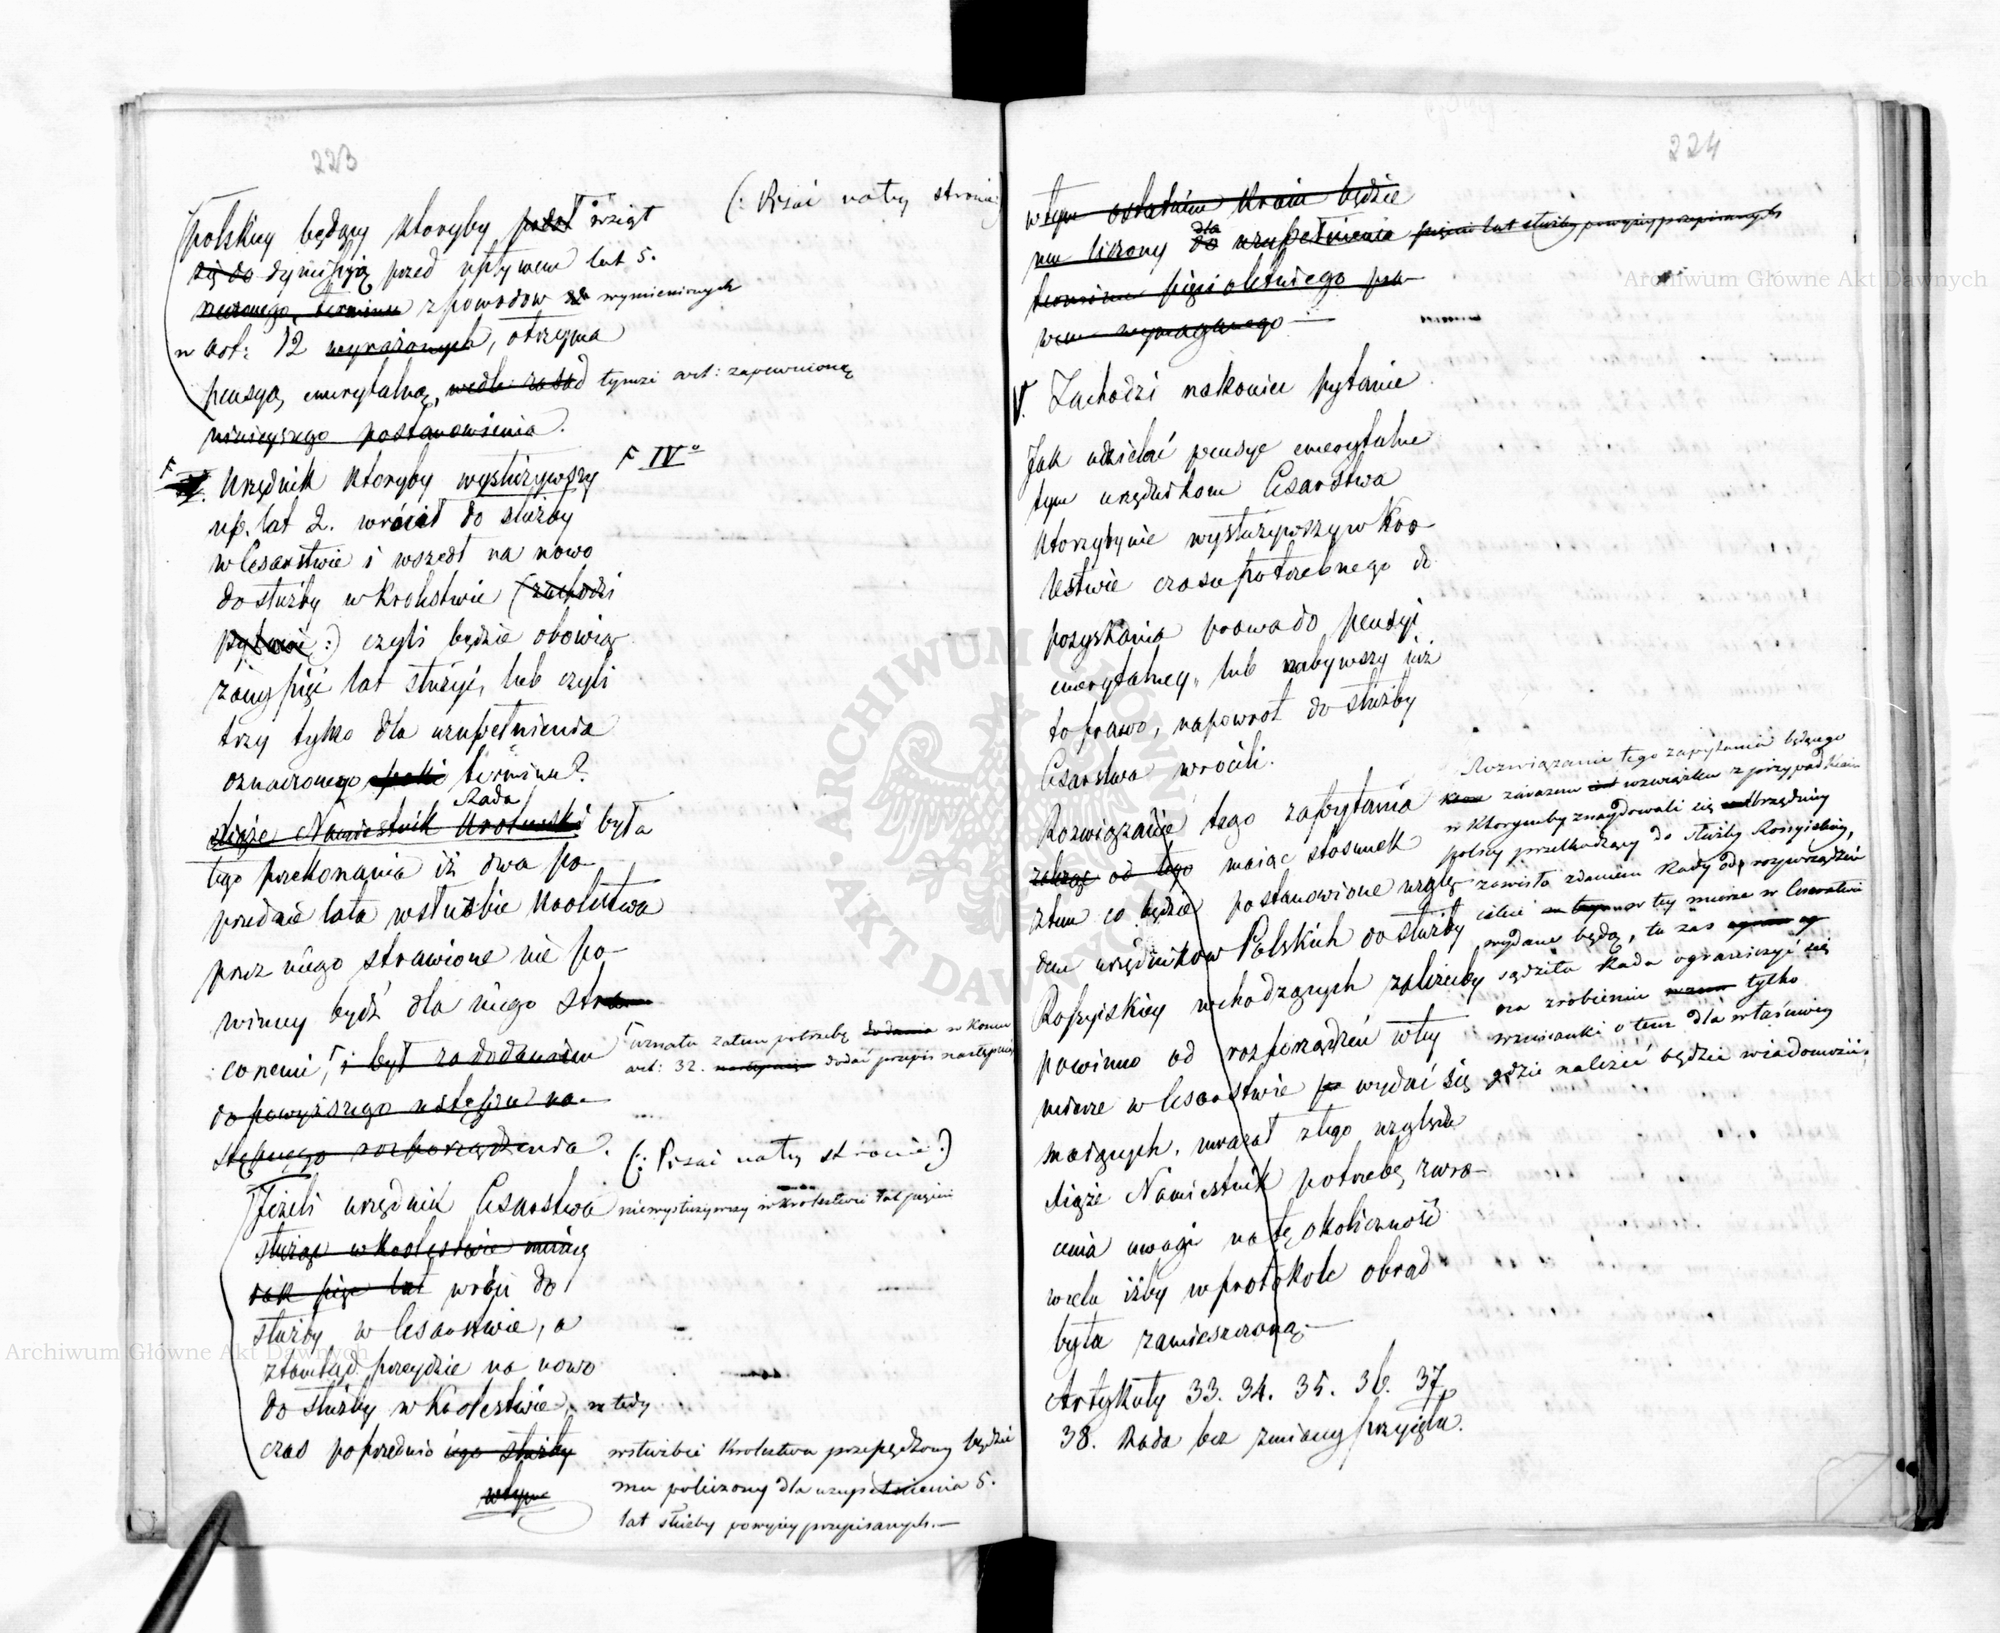 223
(: Pisać na tey stronie:)
polskiey będący któryby podał wziął
się do dymissyią przed upływem lat 5.
rzeczonego terminu z powodow wymienionych
w Art: 12 wyrażonych, otrzyma
pensyą emerytalną, wedle zasad tymże art: zapewnioną
ninieyszego postanowienia.
F IVo
Urzędnik któryby wysłużywszy
np. lat 2. wrócił do służby
w Cesarstwie i wszedł na nowo
do służby w Krolestwie (zachodzi
pytanie :) czyli będzie obowią-
zany pięć lat służyć, lub czyli
trzy tylko dla uzupełnienia
oznaczonego terminu?
Rada
Xiąże Namiestnik Krolewski była
tego przekonania iż dwa po-
przednie lata w służbie Krolestwa
przez niego strawione nie po-
winny bydź dla niego stra-
conemi, i był za dodaniem
uznała zatem potrzebę dodania w końcu
art: 32. dodać przepis następuiący
do powyższego ustępu na-
stępnego rozporządzenia.
(: Pisać na tey stronie :)
Jeżeli urzędnik Cesarstwa
niewysłużywszy w Krolestwie lat pięciu
służąc w Krolestwie mniey
iak pięć lat wróci do
służby w Cesarstwie, a
ztamtąd przeydzie na nowo
do służby w Krolestwie, wtedy
czas poprzednio iego służby
w służbie Krolestwa przepędzony będzie
w tym
mu policzony dla uzupełnienia 5.
lat służby powyżey przepisanych.—
224
w tym ostatnim Kraiu będzie
dla
mu liczony do uzupełnienia pięciu lat służby powyżey przepisanych
terminu pięcioletniego pra-
wem wymaganego—
V. Zachodzi nakoniec pytanie
Jak udzielać pensye emerytalne
tym urzędnikom Cesarstwa
którzyby nie wysłużywszy w Kro-
lestwie czasu potrzebnego do
pozyskania prawa do pensyi
emerytalney, lub nabywszy iuż
to prawo, napowrot do służby
Cesarstwa wrócili.
Rozwiązanie tego zapytania
zależąc od tego maiąc stosunek
ztem co będzie postanowione wzglę-
dem urzędników Polskich do służby
Rossyiskiey wchodzących zależeby
powinno od rozporządzeń w tey
mierze w Cesarstwie wydać się
maiących, uważał z tego względu
Xiąże Namiestnik potrzebę zwró-
cenia uwagi na tę okoliczność
w celu iżby w protokole obrad
była zamieszczoną.—
Rozwiązanie tego zapytania będącego
zarazem w związku z przypadkiem
w którymby znaydowali się Urzędnicy
polscy przechodzący do służby Rossyiskiey,
zawisło zdaniem Rady od rozporządzeń
iakie w tey mierze w Cesarstwie
wydane będą, tu zaś
sądziła Rada ograniczyć się
na zrobieniu tylko
wzmianki o tem dla właściwey
gdzie należeć będzie wiadomości.
Artykuły 33. 34. 35. 36. 37
38. Rada bez zmiany przyięła.
Archiwum Główne Akt Dawnych
Archiwum Główne Akt Dawnych
ARCHIWUM GŁÓWNE AKT DAWNYCH